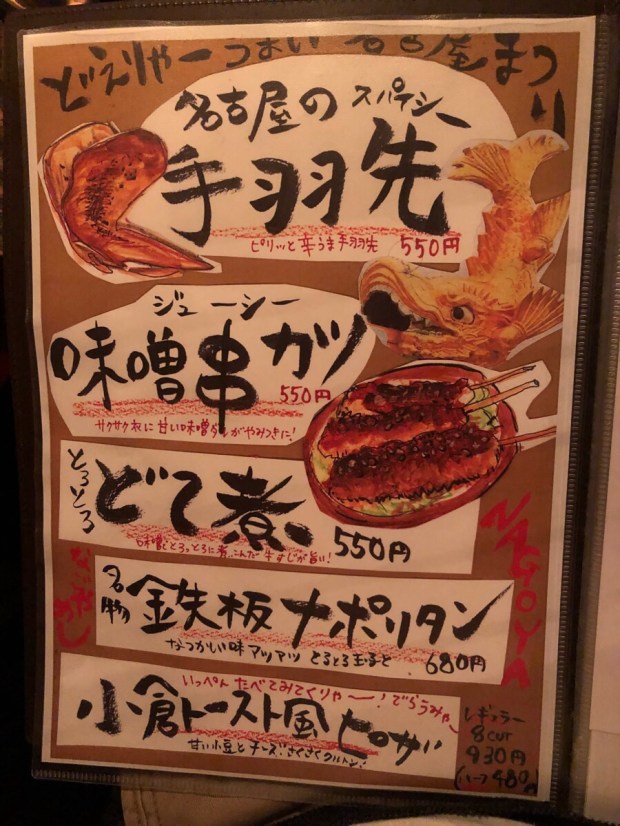 どえりゃーうまい名古屋まつり
名古屋のスパイシー
手羽先
ピリッと辛うま手羽先 550円
ジューシー
味噌串カツ
550円
サクサク衣に甘い味噌ダレがやみつきに!
とろとろ
どて煮
味噌でとろっとろに煮こんだ牛すじが旨い!
550円
NAGOYA
なごやめし
名物
鉄板ナポリタン
なつかしい味アツアツとろとろ玉子と 680円
いっぺんたべてみてくりゃー!でらうみゃ〜
小倉トースト風ピザ
甘い小豆とチーズ!さくさくクルトン!
レギュラー
8cut
930円
(ハーフ480円)